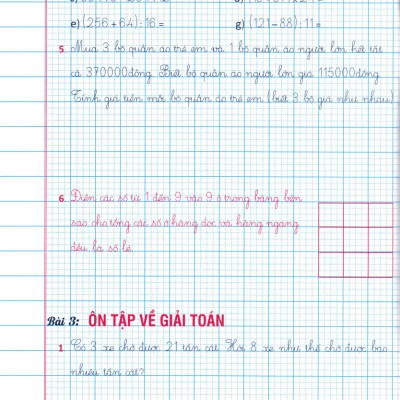 e) (256 + 64) : 16 = g) (121 – 88) : 11 =
5 Mua 3 bộ quần áo trẻ em và 1 bộ quần áo người lớn hết tất
cả 370000 đồng. Biết bộ quần áo người lớn giá 115000 đồng.
Tính giá tiền mỗi bộ quần áo trẻ em (biết 3 bộ giá như nhau)
6 Điền các số từ 1 đến 9 vào 9 ô trong bảng bên
sao cho tổng các số ở hàng dọc và hàng ngang
đều là số lẻ.
Bài 3: ÔN TẬP VỀ GIẢI TOÁN
1 Có 3 xe chở được 21 tấn cát. Hỏi 8 xe như thế chở được bao
nhiêu tấn cát?